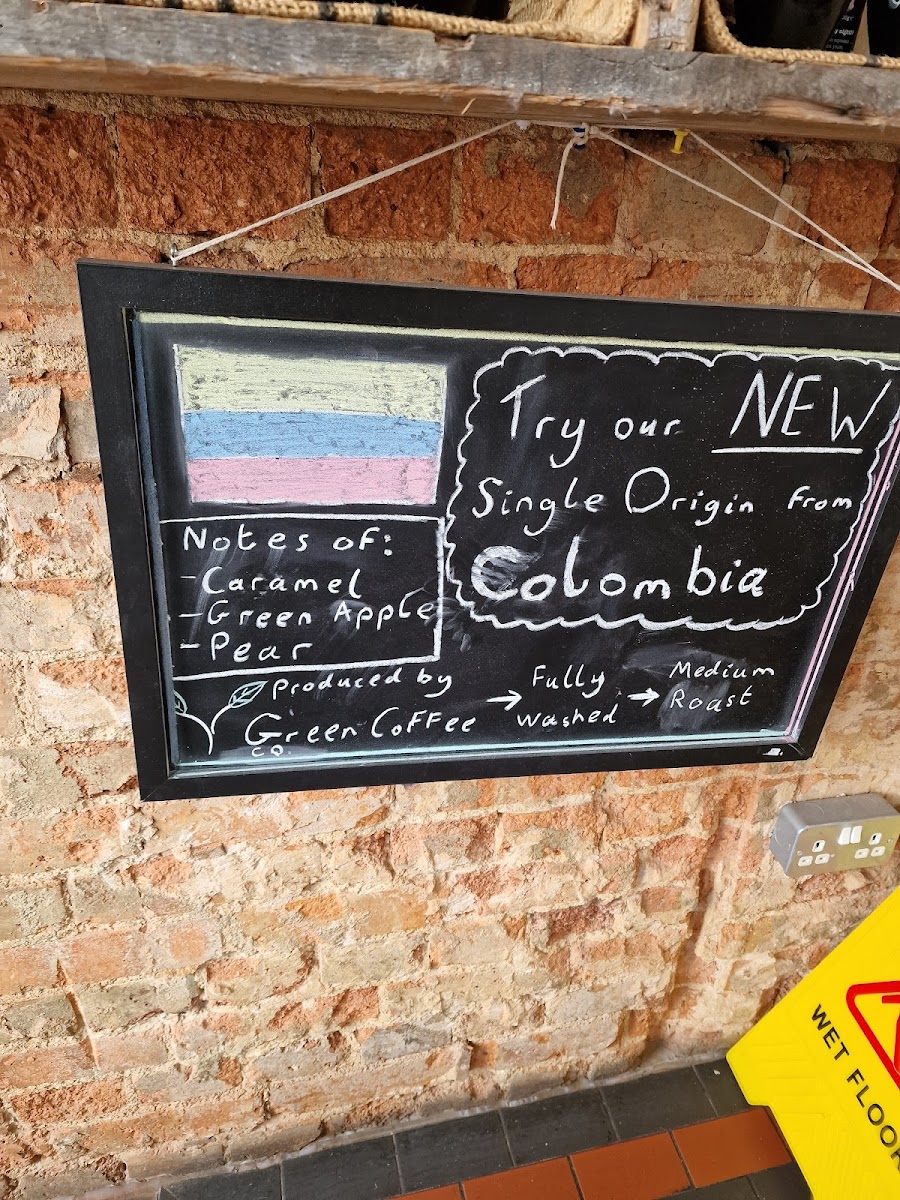 Try our NEW
Single Origin from
Colombia
Notes of:
- Caramel
- Green Apple
- Pear
Produced by
Green Coffee
co.
→ Fully
washed
→ Medium
Roast
WET FLOOR